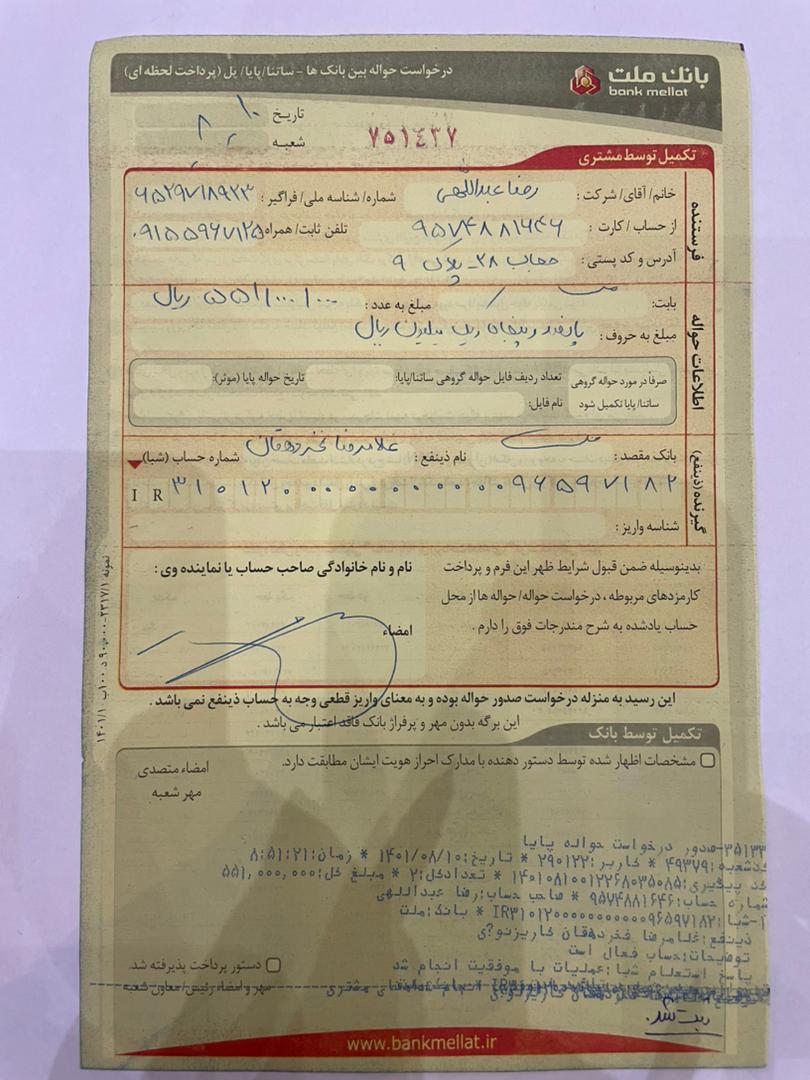 بانک ملت
bank mellat
درخواست حواله بین بانک ها - ساتنا/پایا/ پل (پرداخت لحظه ای)
تاریخ ۱۰
شعبه ۸
۷۵۱۴۳۷
تکمیل توسط مشتری
فرستنده
خانم/ آقای/ شرکت : رضا عبداللهی شماره/ شناسه ملی/ فراگیر : ۶۵۲۹۷۱۸۹۲۳
از حساب / کارت : ۹۵۷۴۸۸۱۶۴۶ تلفن ثابت/ همراه ۰۹۱۵۵۹۶۷۱۲۵
آدرس و کد پستی : ۲۸ - پلاک ۹
اطلاعات حواله
بابت: مبلغ به عدد : ۵۵۱/۰۰۰/۰۰۰ ریال
مبلغ به حروف : پانصد و پنجاه و یک میلیون ریال
صرفاً در مورد حواله گروهی ساتنا/ پایا تکمیل شود
تعداد ردیف فایل حواله گروهی ساتنا/پایا: تاریخ حواله پایا (موثر):
نام فایل:
گیرنده (ذینفع)
بانک مقصد : ملت نام ذینفع : غلامرضا فخردهقان شماره حساب (شبا)
IR ۳۱۰۱۲۰۰۰۰۰۰۰۰۰۰۰۹۶۵۹۷۱۸۲
شناسه واریز :
بدینوسیله ضمن قبول شرایط ظهر این فرم و پرداخت
کارمزدهای مربوطه ، درخواست حواله/ حواله ها از محل
حساب یادشده به شرح مندرجات فوق را دارم .
نام و نام خانوادگی صاحب حساب یا نماینده وی :
امضاء
این رسید به منزله درخواست صدور حواله بوده و به معنای واریز قطعی وجه به حساب ذینفع نمی باشد .
این برگه بدون مهر و پرفراژ بانک فاقد اعتبار می باشد .
تکمیل توسط بانک
مشخصات اظهار شده توسط دستور دهنده با مدارک احراز هویت ایشان مطابقت دارد.
امضاء متصدی
مهر شعبه
۳۵۱۳۳-صدور درخواست حواله پایا
کدشعبه:۴۹۳۷۹ * کاربر:۲۹۰۱۲۲ * تاریخ:۱۴۰۱/۰۸/۱۰ * زمان:۸:۵۱:۲۱
کد پیگیری:۱۴۰۱۰۸۱۰۰۱۲۲۶۸۰۳۵۰۸۵ * تعدادکل:۲ * مبلغ کل:۵۵۱,۰۰۰,۰۰۰
شماره حساب:۹۵۷۴۸۸۱۶۴۶ * صاحب حساب:رضا عبداللهی
۱-شبا:IR۳۱۰۱۲۰۰۰۰۰۰۰۰۰۰۰۹۶۵۹۷۱۸۲ * بانک:ملت
ذینفع:غلامرضا فخردهقان کاریزنو؟ی
توضیحات:حساب فعال است
پاسخ استعلام شبا:عملیات با موفقیت انجام شد
دستور پرداخت پذیرفته شد.
مهر و امضاء رئیس/ معاون شعبه
ثبت شد.
www.bankmellat.ir